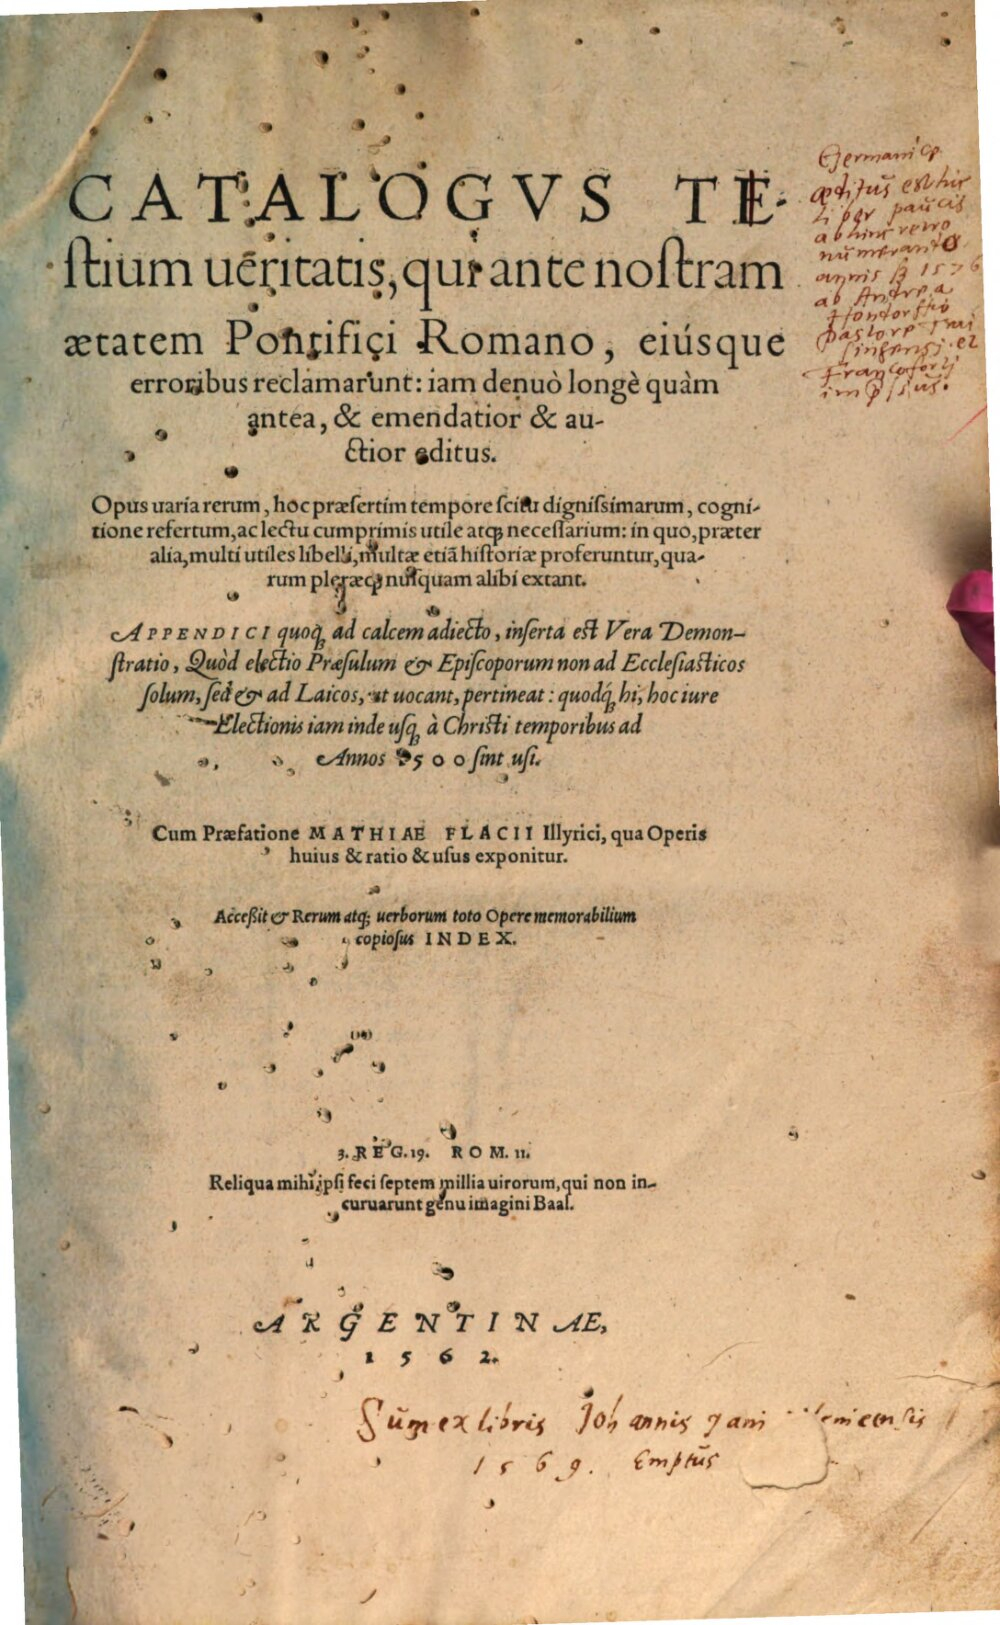 CATALOGVS TE-
ſtium ueritatis, qui ante noſtram
ætatem Pontifici Romano, eiúsque
erroribus reclamarunt: iam denuò longè quàm
antea, & emendatior & au-
ctior editus.
Opus uaria rerum, hoc præſertim tempore ſcitu digniſsimarum, cogni-
tione refertum, ac lectu cumprimis utile atq; neceſſarium: in quo, præter
alia, multi utiles libelli, multæ etiã hiſtoriæ proferuntur, qua-
rum pleræq; nuſquam alibi extant.
APPENDICI quoq; ad calcem adiecto, inſerta eſt Vera Demon-
ſtratio, Quòd electio Præſulum & Epiſcoporum non ad Eccleſiaſticos
ſolum, ſed & ad Laicos, ut uocant, pertineat: quodq́; hi, hoc iure
Electionis iam inde uſq; à Chriſti temporibus ad
Annos 1500 ſint uſi.
Cum Præfatione MATHIAE FLACII Illyrici, qua Operis
huius & ratio & uſus exponitur.
Acceßit & Rerum atq; uerborum toto Opere memorabilium
copioſus INDEX.
3. REG. 19. ROM. 11.
Reliqua mihi ipſi feci ſeptem millia uirorum, qui non in-
curuarunt genu imagini Baal.
ARGENTINAE,
1562.
Sũm ex libris Johannis Jani
1569. Emptũs
Germanicę
æditũs est hic
liber paũcis
ab hinc retro
nũmerando
annis 1576
ab Andrea
Hondorffio
pastore
et
Francoforti
impssũs.